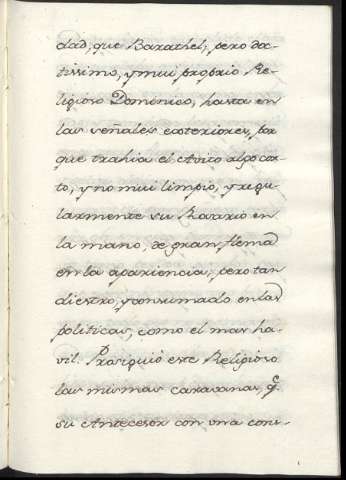 dad, que Barathel; pero doc-
tissimo, y mui proprio Re-
ligioso Dominico, hasta en
las señales exteriores, por
que trahia el Avito algo cor-
to, y no mui limpio, y regu-
larmente su Rosario en
la mano, de gran flema
en la apariencia; pero tan
diestro, y consumado en las
politicas, como el mas ha-
vil. Prosiguiò este Religioso
las mismas caravanas, q̃
su Antecesor con una cons-